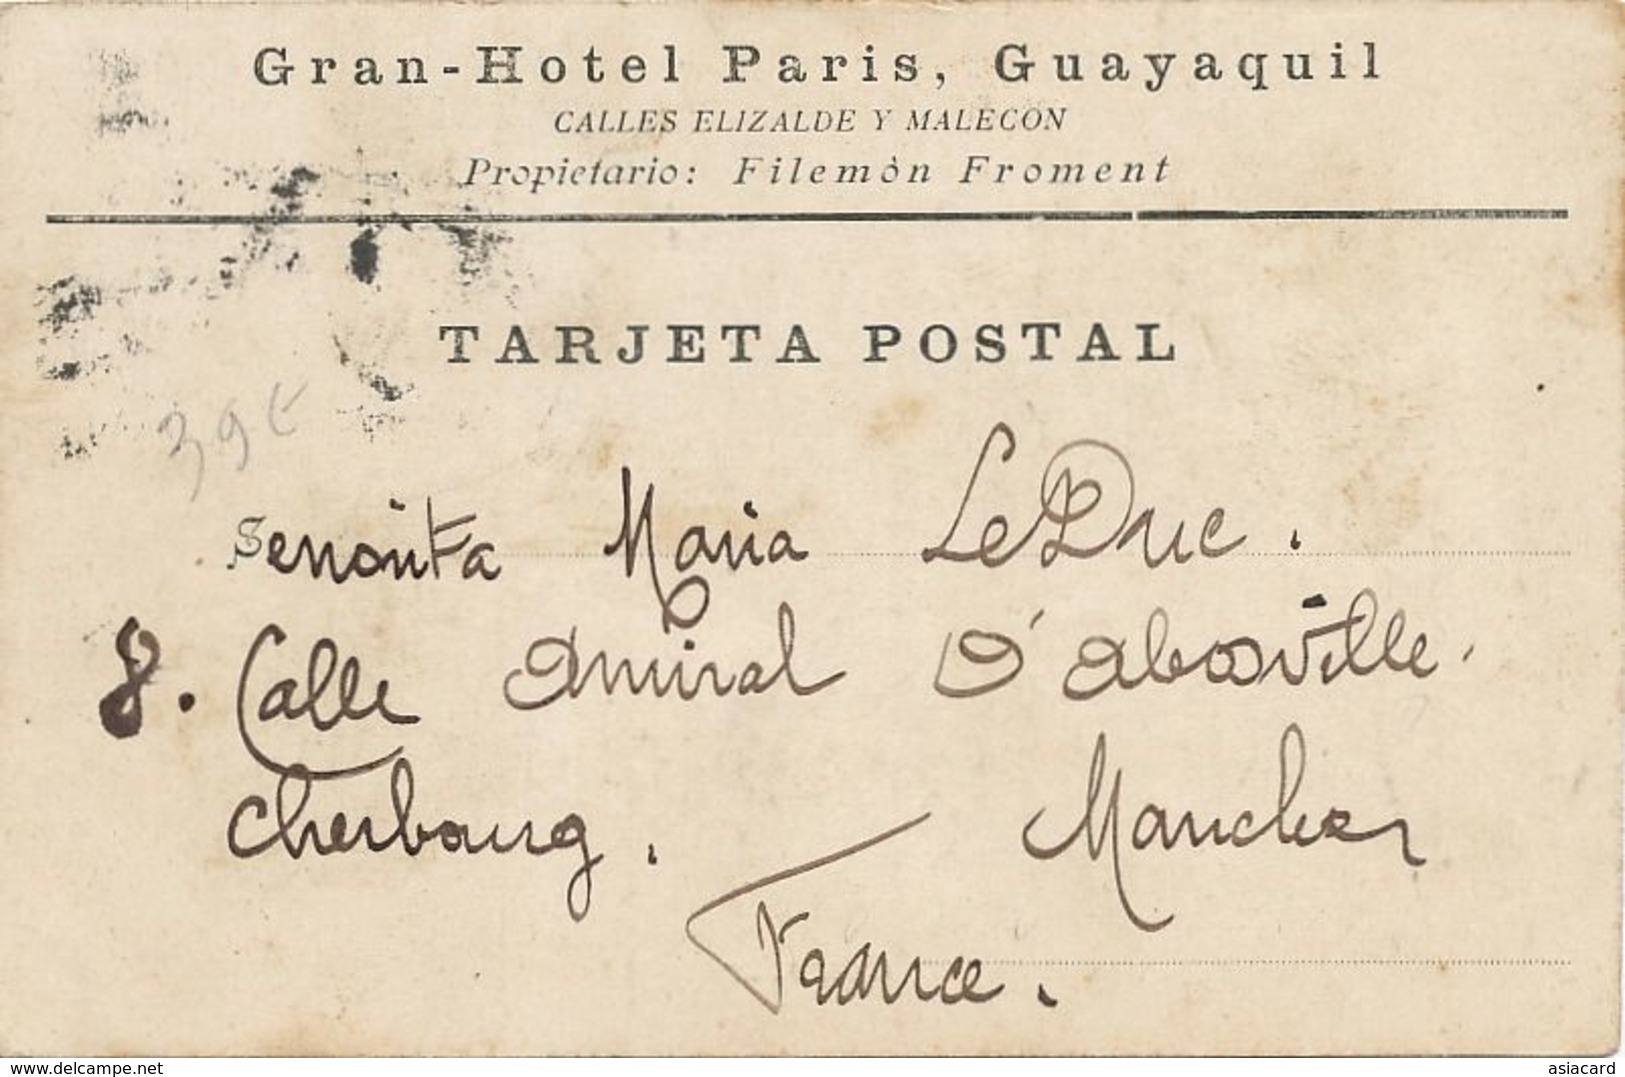 Gran-Hotel Paris, Guayaquil
CALLES ELIZALDE Y MALECÓN
Propietario: Filemòn Froment
TARJETA POSTAL
39€
Senorita Maria LeDuc.
8. Calle Amiral D'Aboville.
Cherbourg. Manche
France.
www.delcampe.net
asiacard